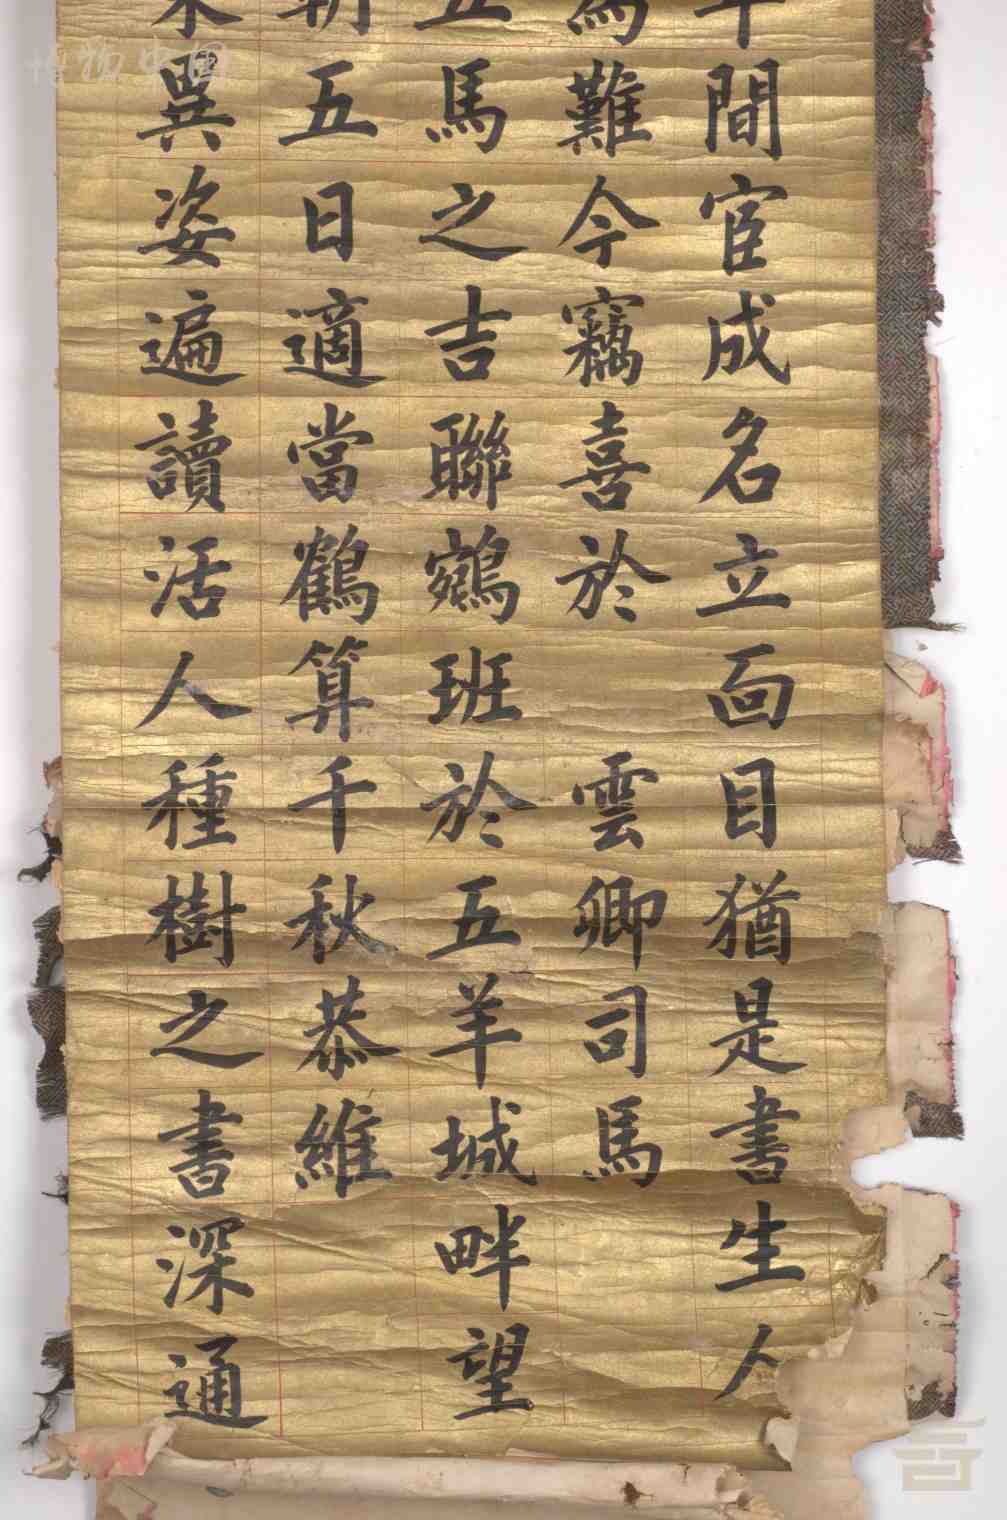 年間宦成名立面目猶是書生人
為難今竊喜於　雲卿司馬
五馬之吉聯鵷班於五羊城畔望
朝五日適當鶴算千秋恭維
異姿遍讀活人種樹之書深通
博物中國